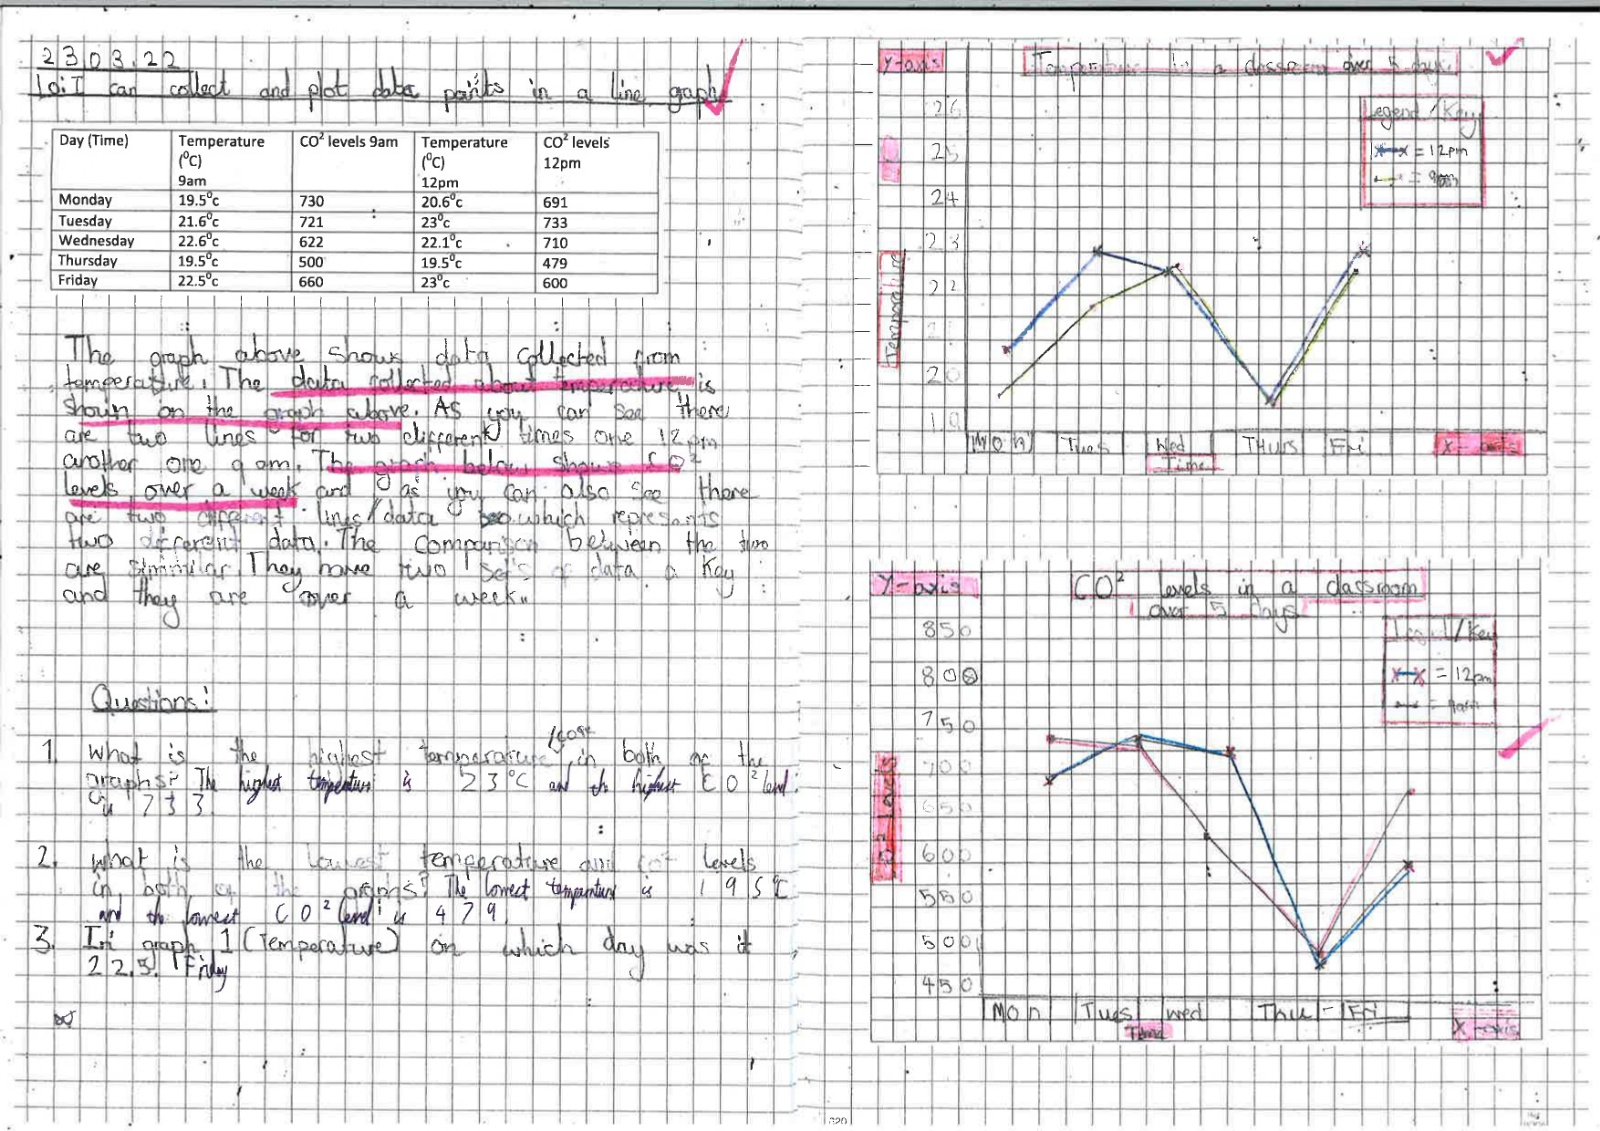 23.03.22
Lo: I can collect and plot data points in a line graph
Day (Time) Temperature (⁰C) 9am CO² levels 9am Temperature (⁰C) 12pm CO² levels 12pm
Monday 19.5⁰c 730 20.6⁰c 691
Tuesday 21.6⁰c 721 23⁰c 733
Wednesday 22.6⁰c 622 22.1⁰c 710
Thursday 19.5⁰c 500 19.5⁰c 479
Friday 22.5⁰c 660 23⁰c 600
The graph above shows data collected from
temperature. The data collected about temperature is
shown on the graph above. As you can see there
are two lines for two different times one 12pm
another one 9am. The graph below shows CO²
levels over a week and as you can also see there
are two different lines/data which represents
two different data. The comparison between the two
are simmilar. They have two set's of data a Key
and they are over a week.
Questions:
1. What is the highest temperature in both of the
graphs? The highest temperature is 23°C and the highest CO² level
is 733.
2. What is the lowest temperature and CO² levels
in both of the graphs? The lowest temperature is 19.5°C
and the lowest CO² level is 479.
3. In graph 1 (Temperature) on which day was it
22.5. Friday
Y-axis
Temperature in a classroom over 5 days.
Legend/Key
x–x = 12pm
= 9am
26
25
24
23
22
21
20
19
Temperature
Mon Tues Wed THURS Fri
Time
X-axis
Y-axis
CO² levels in a classroom
over 5 days
Legend/Key
x–x = 12pm
= 9am
850
800
750
700
650
600
550
500
450
CO² levels
Mon Tues wed Thu - Fri
Time
X-axis